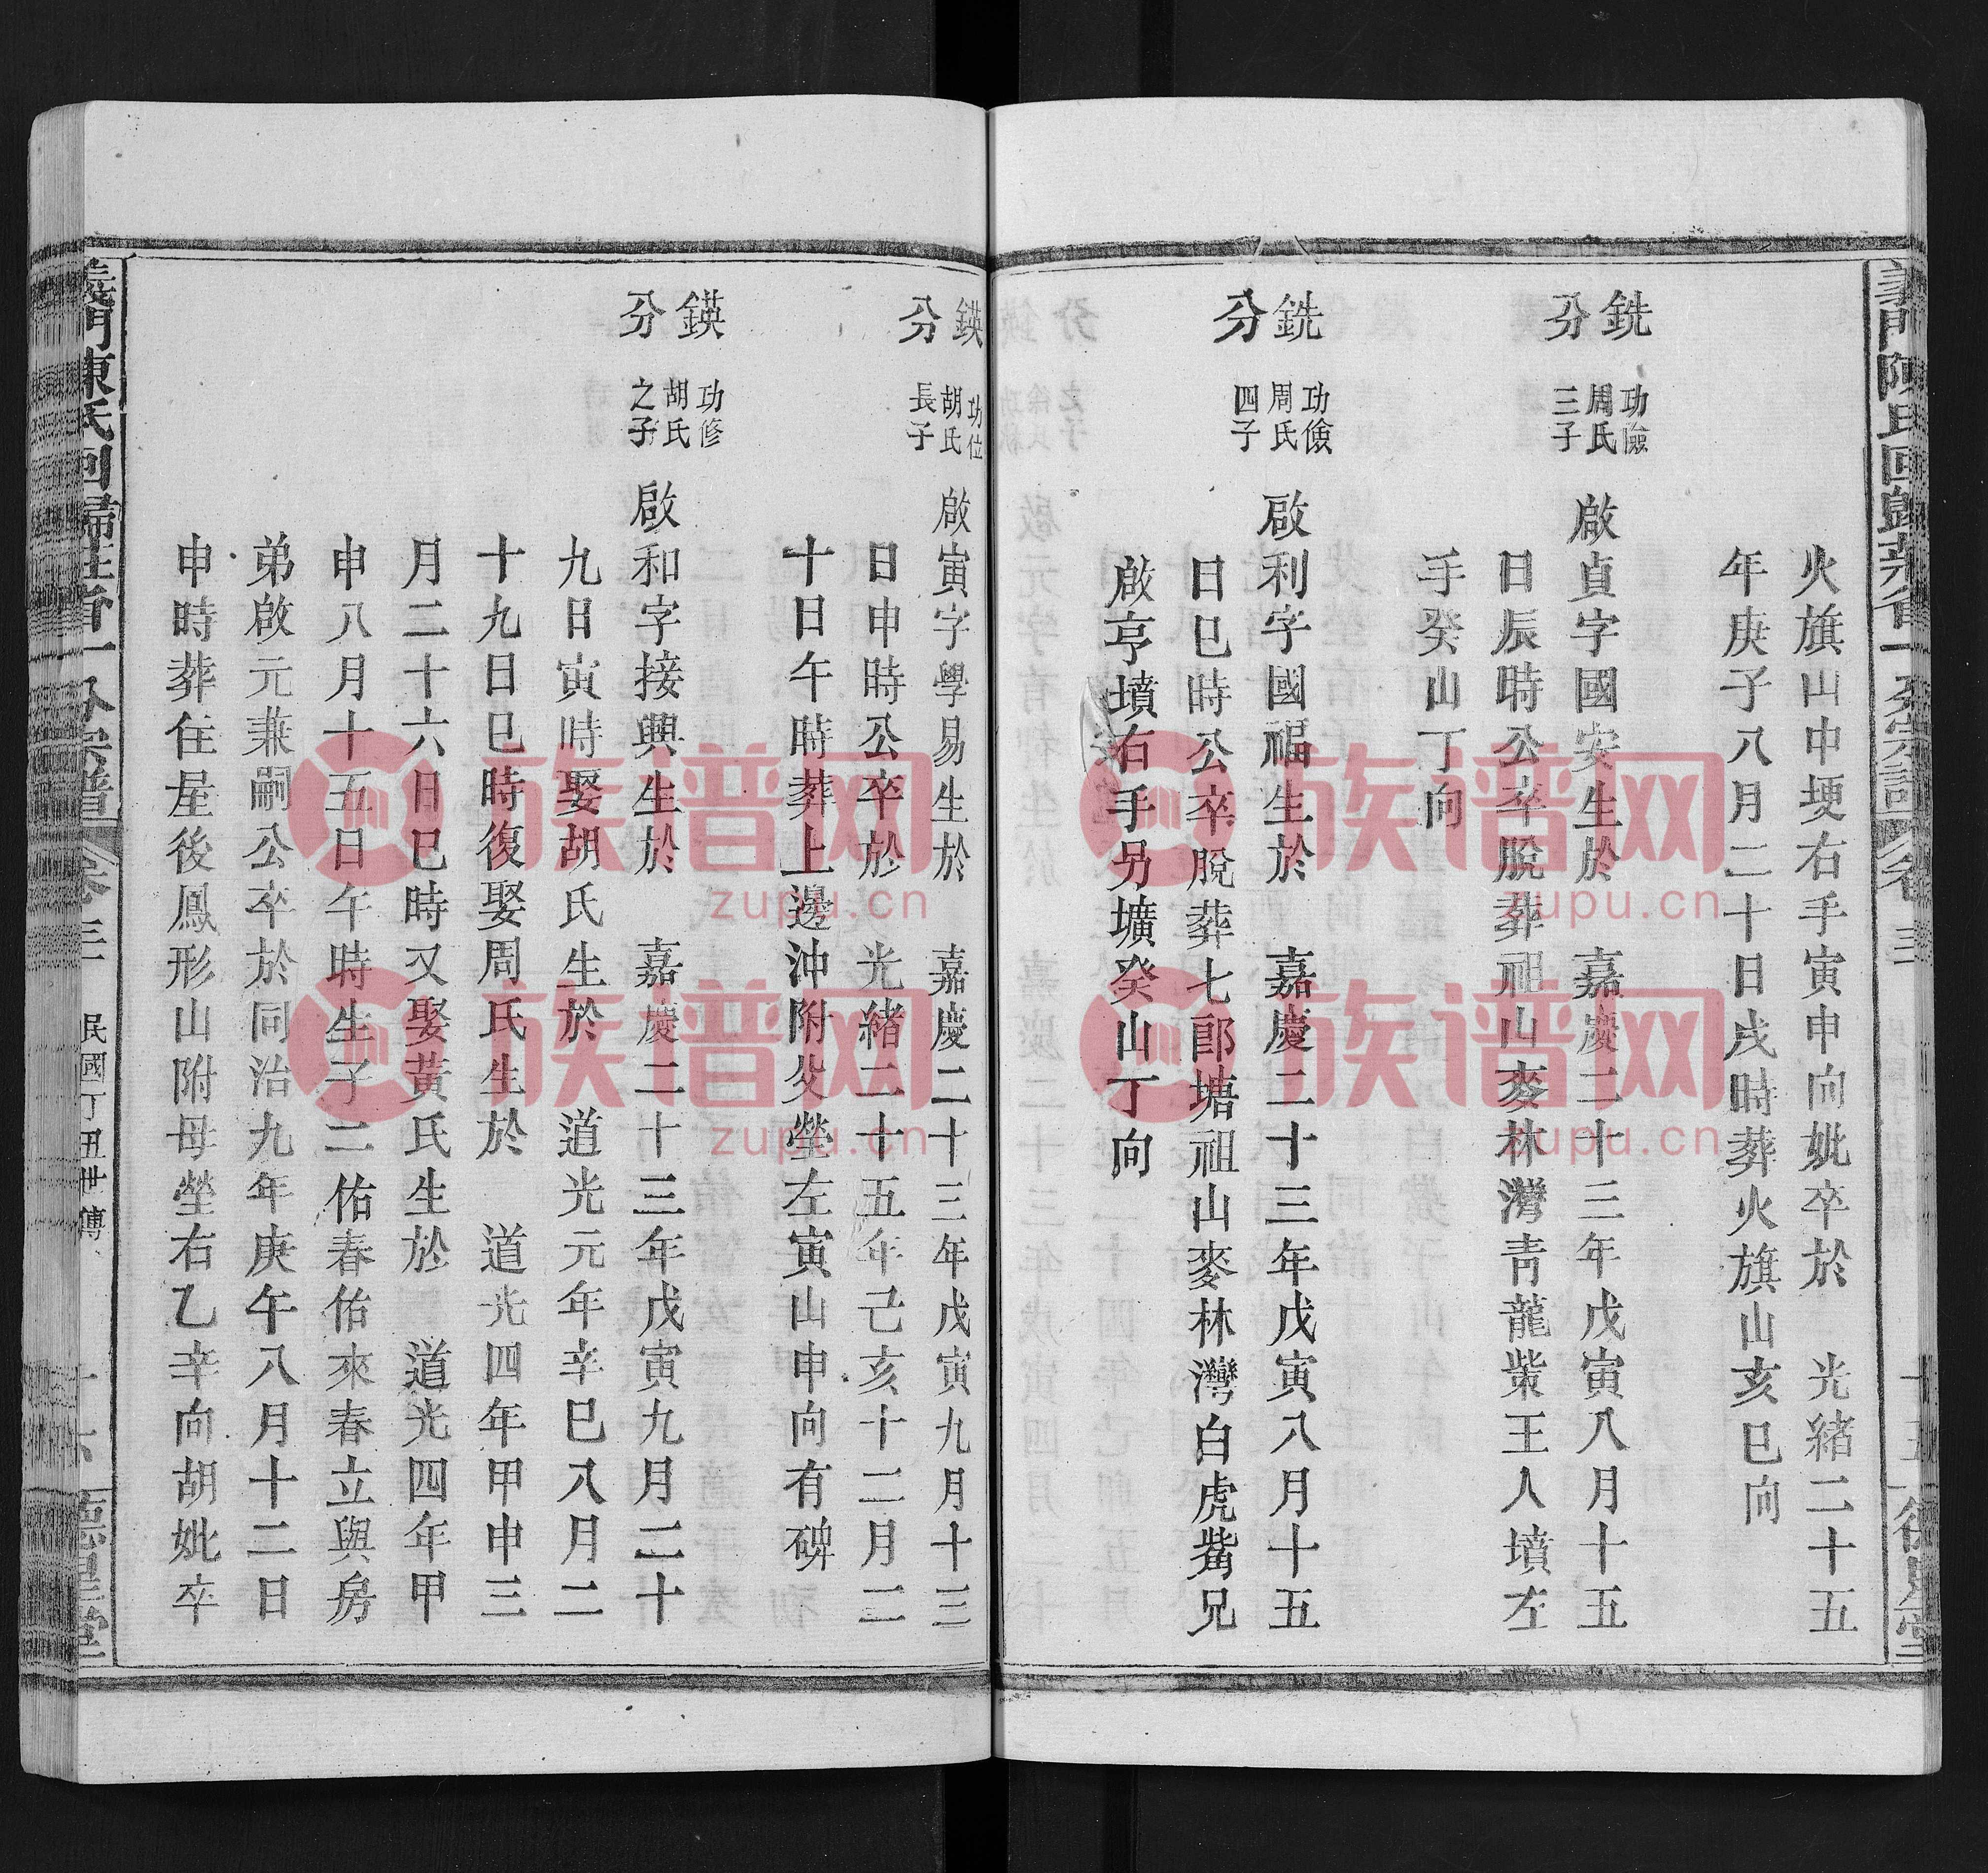 義門陳氏回歸莊省一分宗譜 卷三 十五 德星堂
火旗山中埂右手寅申向妣卒於 光緒二十五
年庚子八月二十日戌時葬火旗山亥巳向
銑分 功儉周氏三子 啟貞字國安生於 嘉慶二十三年戊寅八月十五
日辰時公卒脫葬祖山麥林灣青龍柴王人墳左
手癸山丁向
銑分 功儉周氏四子 啟利字國福生於 嘉慶二十三年戊寅八月十五
日巳時公卒脫葬七郎塘祖山麥林灣白虎觜兄
啟亨墳右手另壙癸山丁向
鍈分 功位胡氏長子 啟寅字學易生於 嘉慶二十三年戊寅九月十三
日申時公卒於 光緒二十五年己亥十二月二
十日午時葬上邊沖附父塋左寅山申向有碑
鍈分 功修胡氏之子 啟和字接興生於 嘉慶二十三年戊寅九月二十
九日寅時娶胡氏生於 道光元年辛巳八月二
十九日巳時復娶周氏生於 道光四年甲申三
月二十六日巳時又娶黃氏生於 道光四年甲
申八月十五日午時生子二佑春佑來春立與房
弟啟元兼嗣公卒於同治九年庚午八月十二日
申時葬住屋後鳳形山附母塋右乙辛向胡妣卒
義門陳氏回歸莊省一分宗譜 卷三 民國丁丑世傳 十六 德星堂
族谱网
zupu.cn
族谱网
zupu.cn
族谱网
zupu.cn
族谱网
zupu.cn